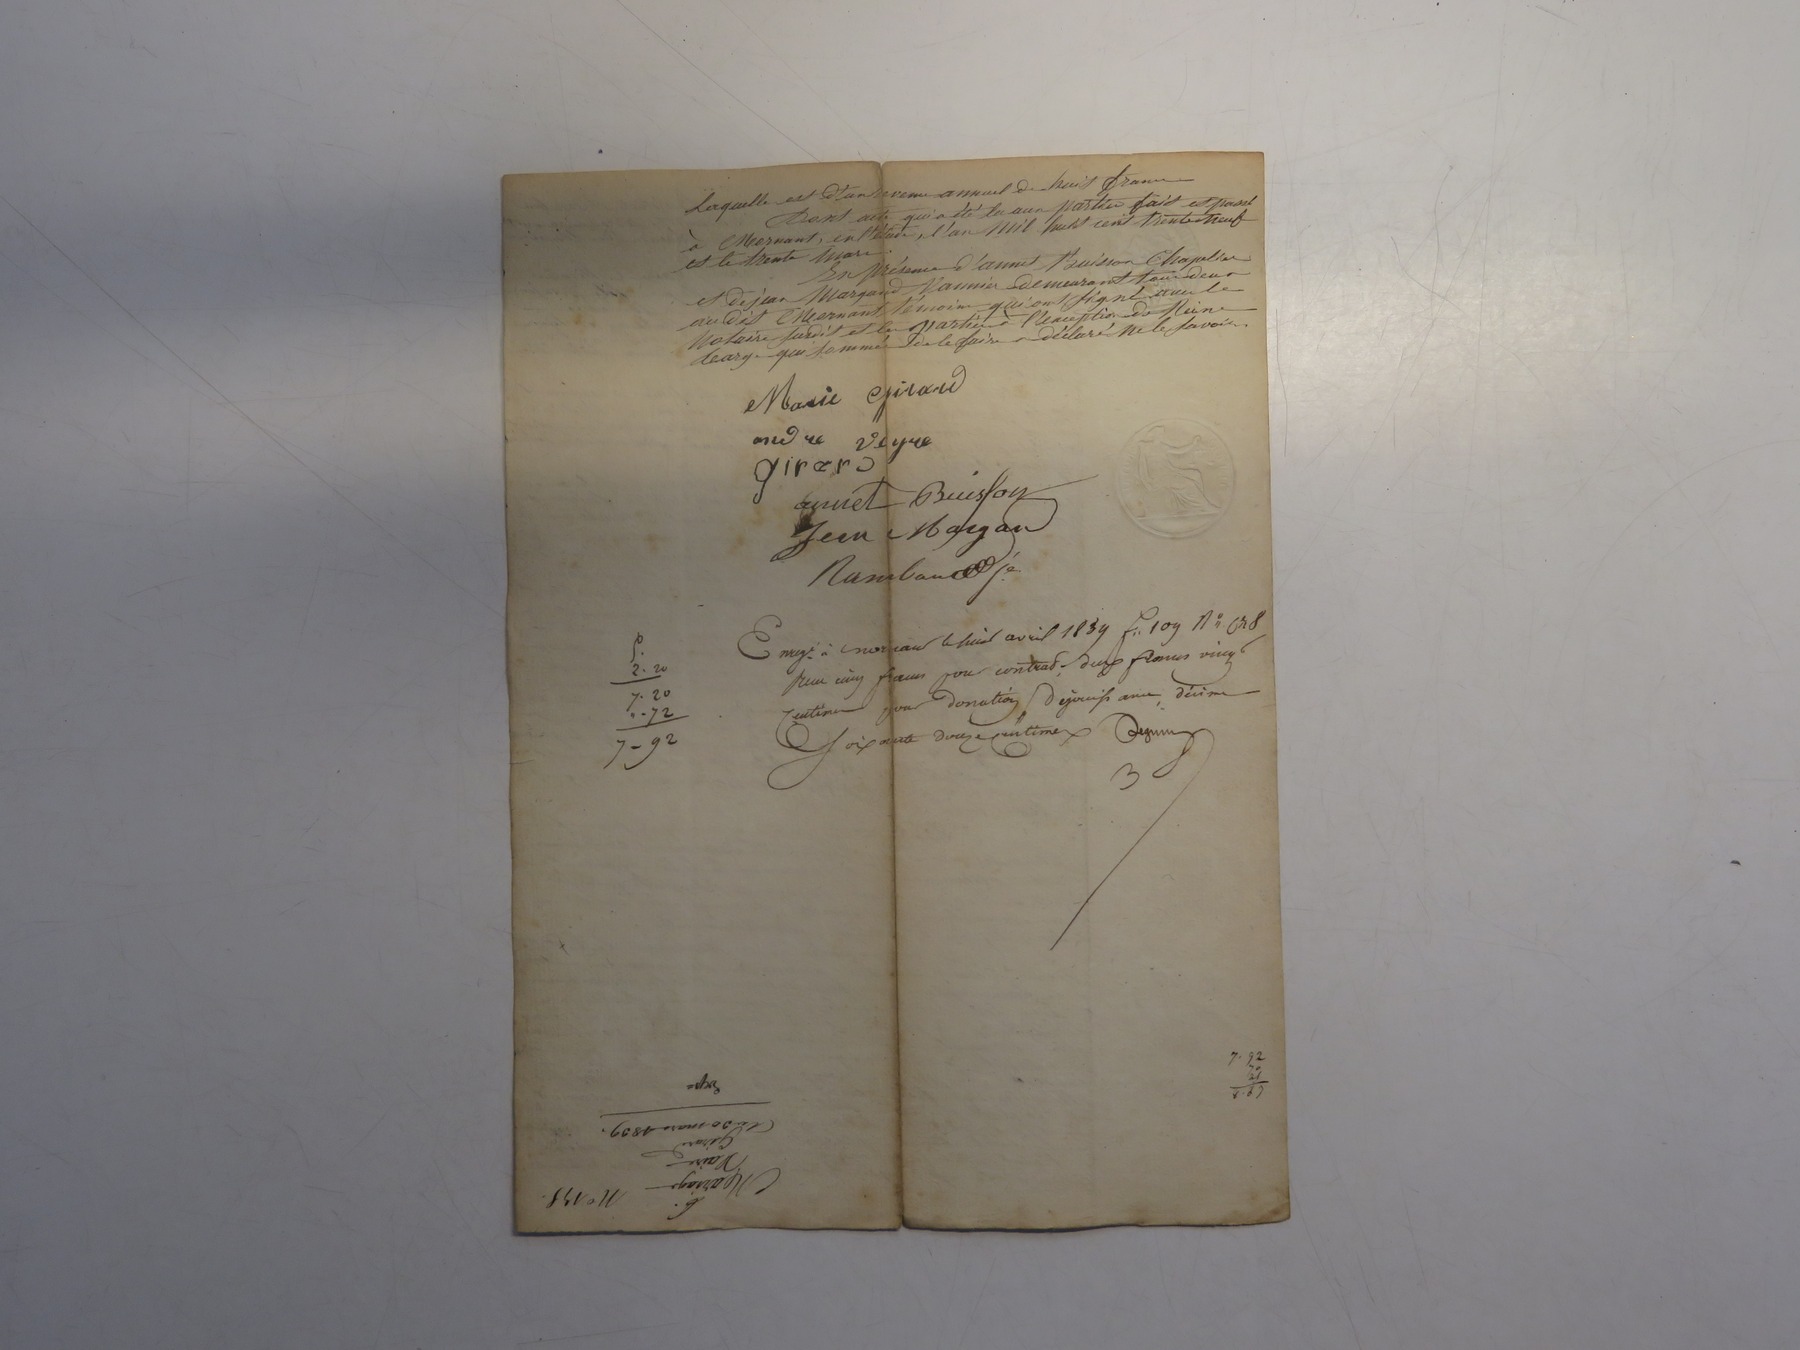 Laquelle est d'un revenu annuel de huit francs
Dont acte qui a été lu aux parties fait et passé
à Mornant, en l'étude, l'an Mil huit cent trente neuf
et le trente Mars
En présence d'annet Buisson Chapelier
et de jean Margand Vannier demeurant tous deux
au dit Mornant témoins qui ont signé avec le
Notaire susdit et les parties à l'exception de Reine
qui sommée de le faire a déclaré ne le savoir.
Marie Girard
andre veyre
girard
annet Buisson
Jean Margan
Rambaud
Enreg. à mornant le huit avril 1839 fo. 109 No.
Reçu cinq francs pour contrat, deux francs vingt
centimes pour donation, décime
Soixante douze centimes
3
5.
2-20
7-20
"-72
7-92
7-92
No 178.
Mariage
Girard
Du 30 mars 1839.
Expn